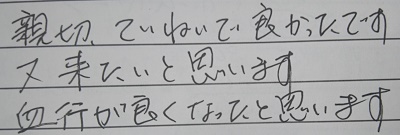 親切、ていねいで良かったです
又来たいと思います
血行が良くなったと思います